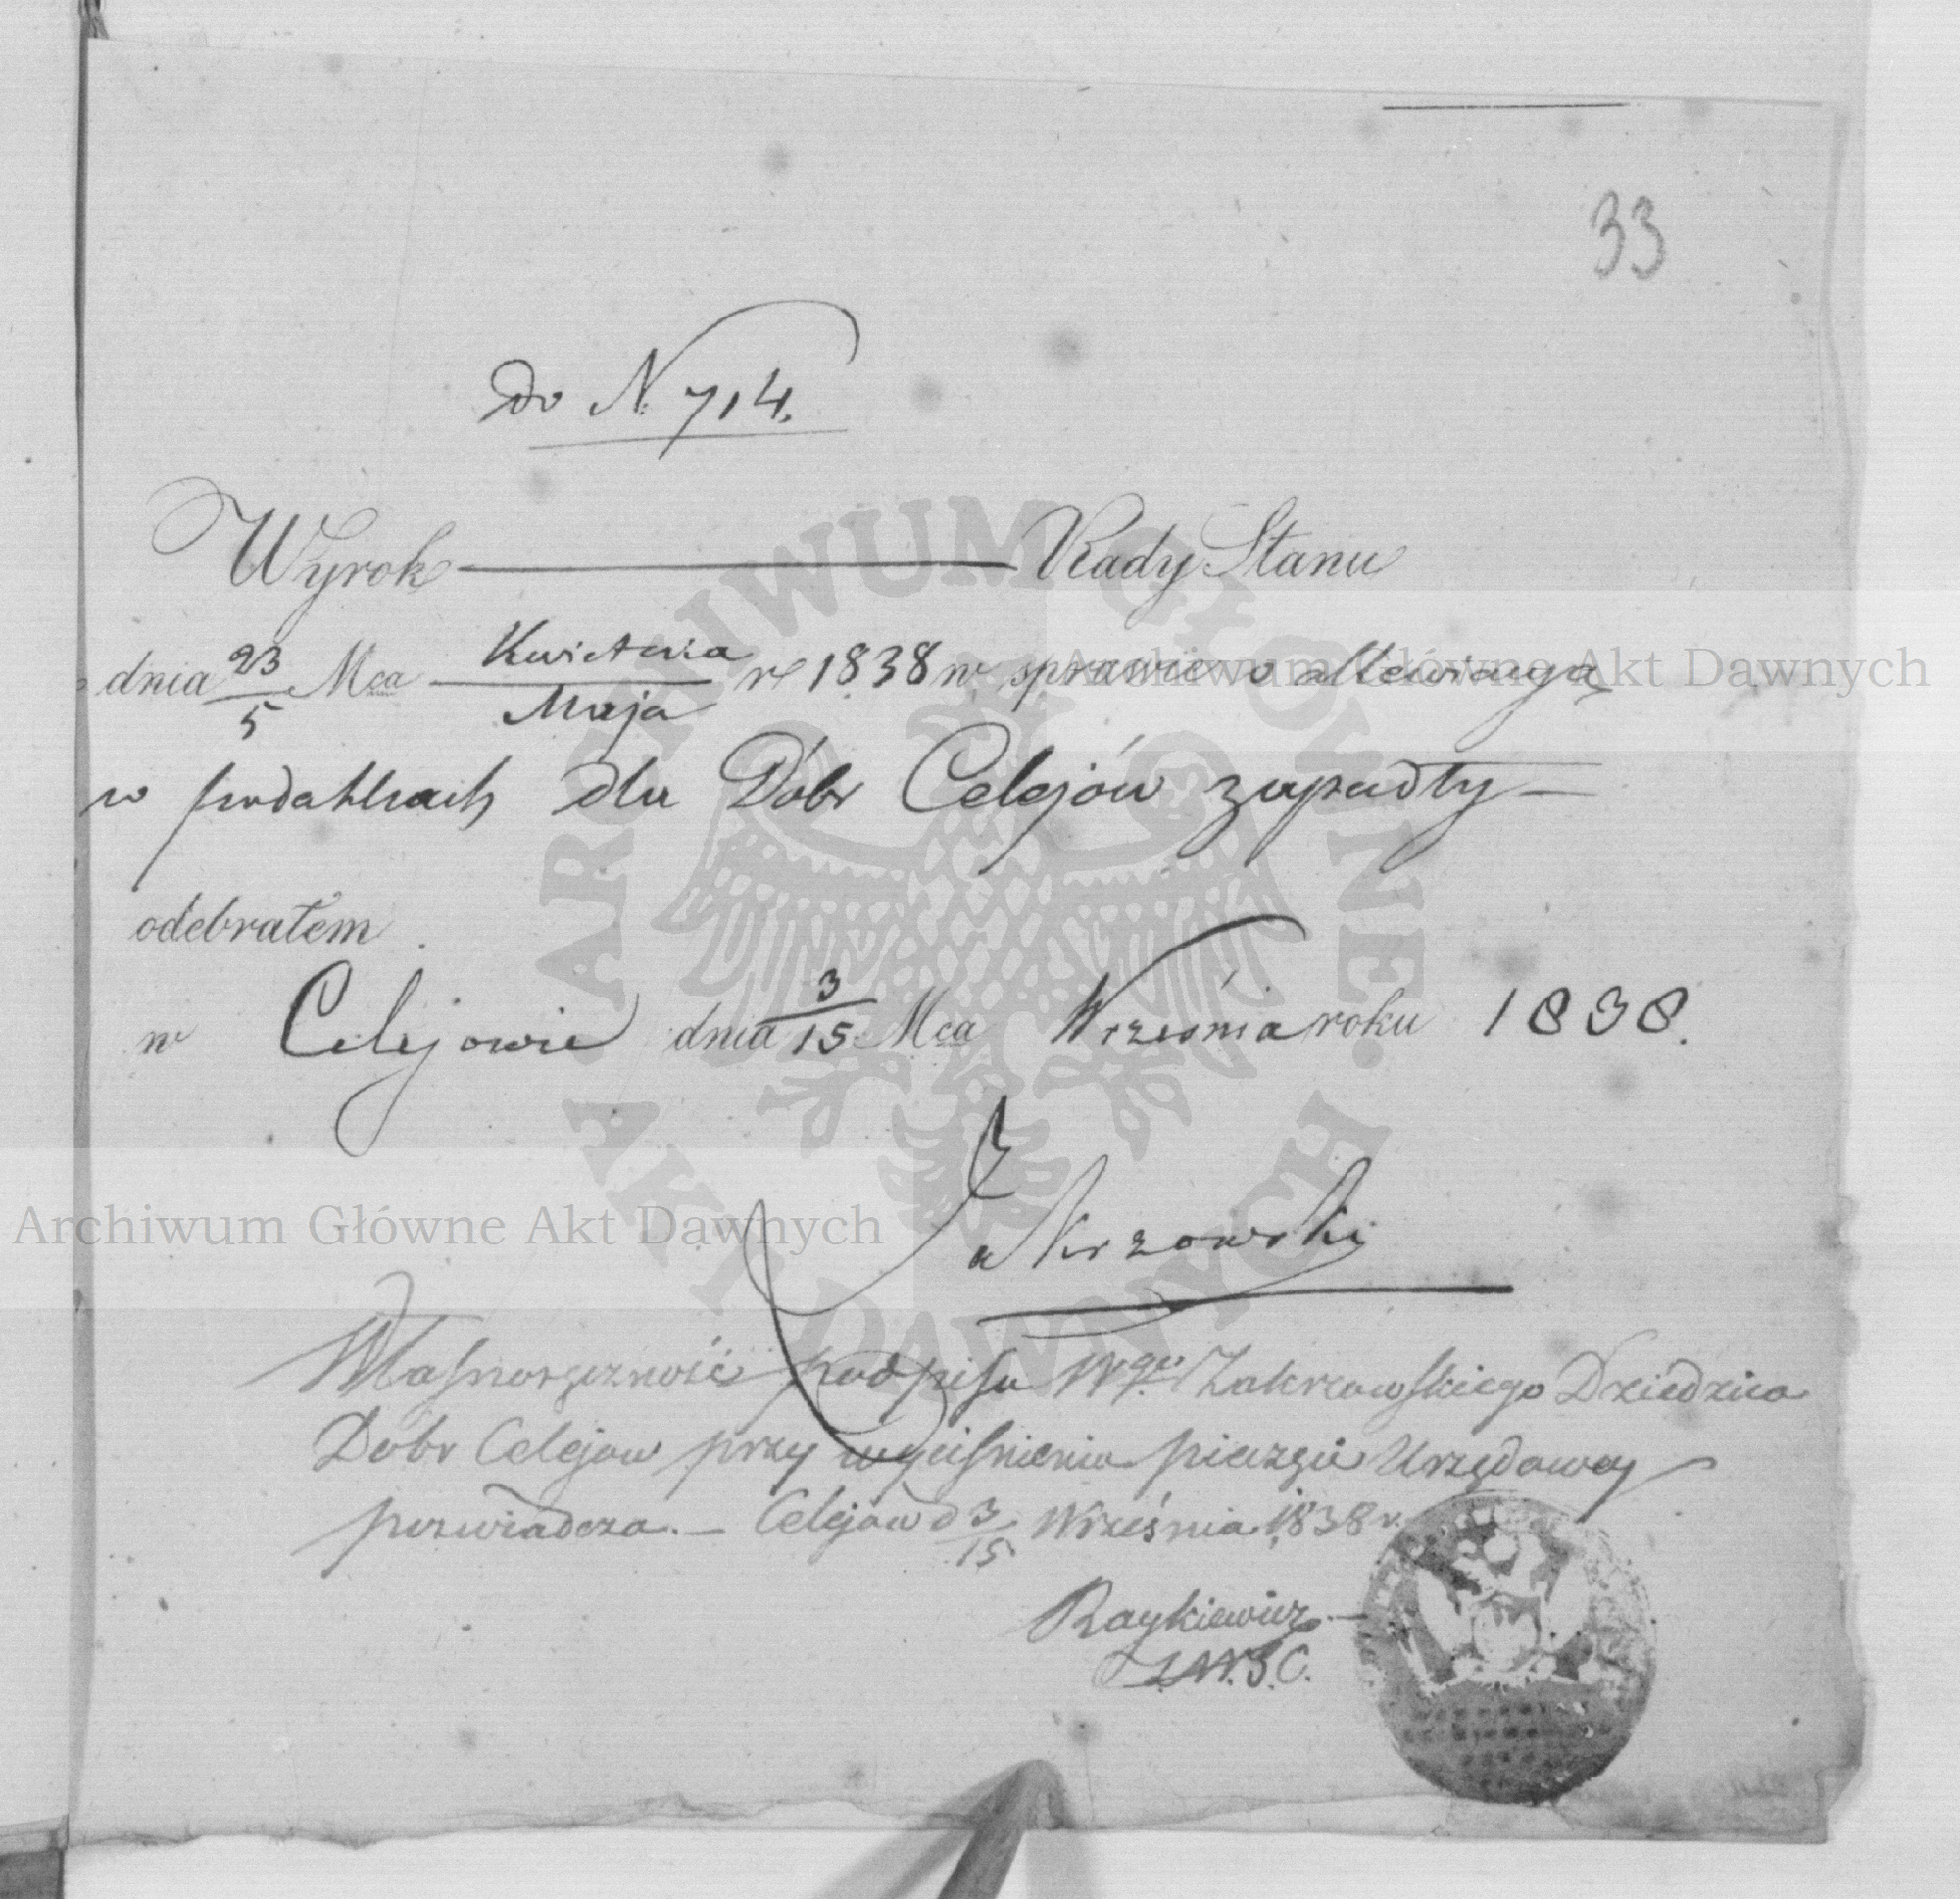 33
do N. 714.
Wyrok — Rady Stanu
dnia 23/5 Mca Kwietnia/Maja r 1838 w sprawie o allewiacyą
w podatkach dla Dóbr Celejów zapadły —
odebrałem
w Celejowie dnia 3/15 Mca Września roku 1838.
Zakrzewski
Własnoręczność podpisu Wgo Zakrzewskiego Dziedzica
Dobr Celejow przy wyciśnieniu pieczęci Urzędowey
poswiadcza. — Celejow d 3/15 Września 1838 r.
Raykiewicz —
Z.W.G.C.
ARCHIWUM GŁÓWNE AKT DAWNYCH
Archiwum Główne Akt Dawnych
Archiwum Główne Akt Dawnych